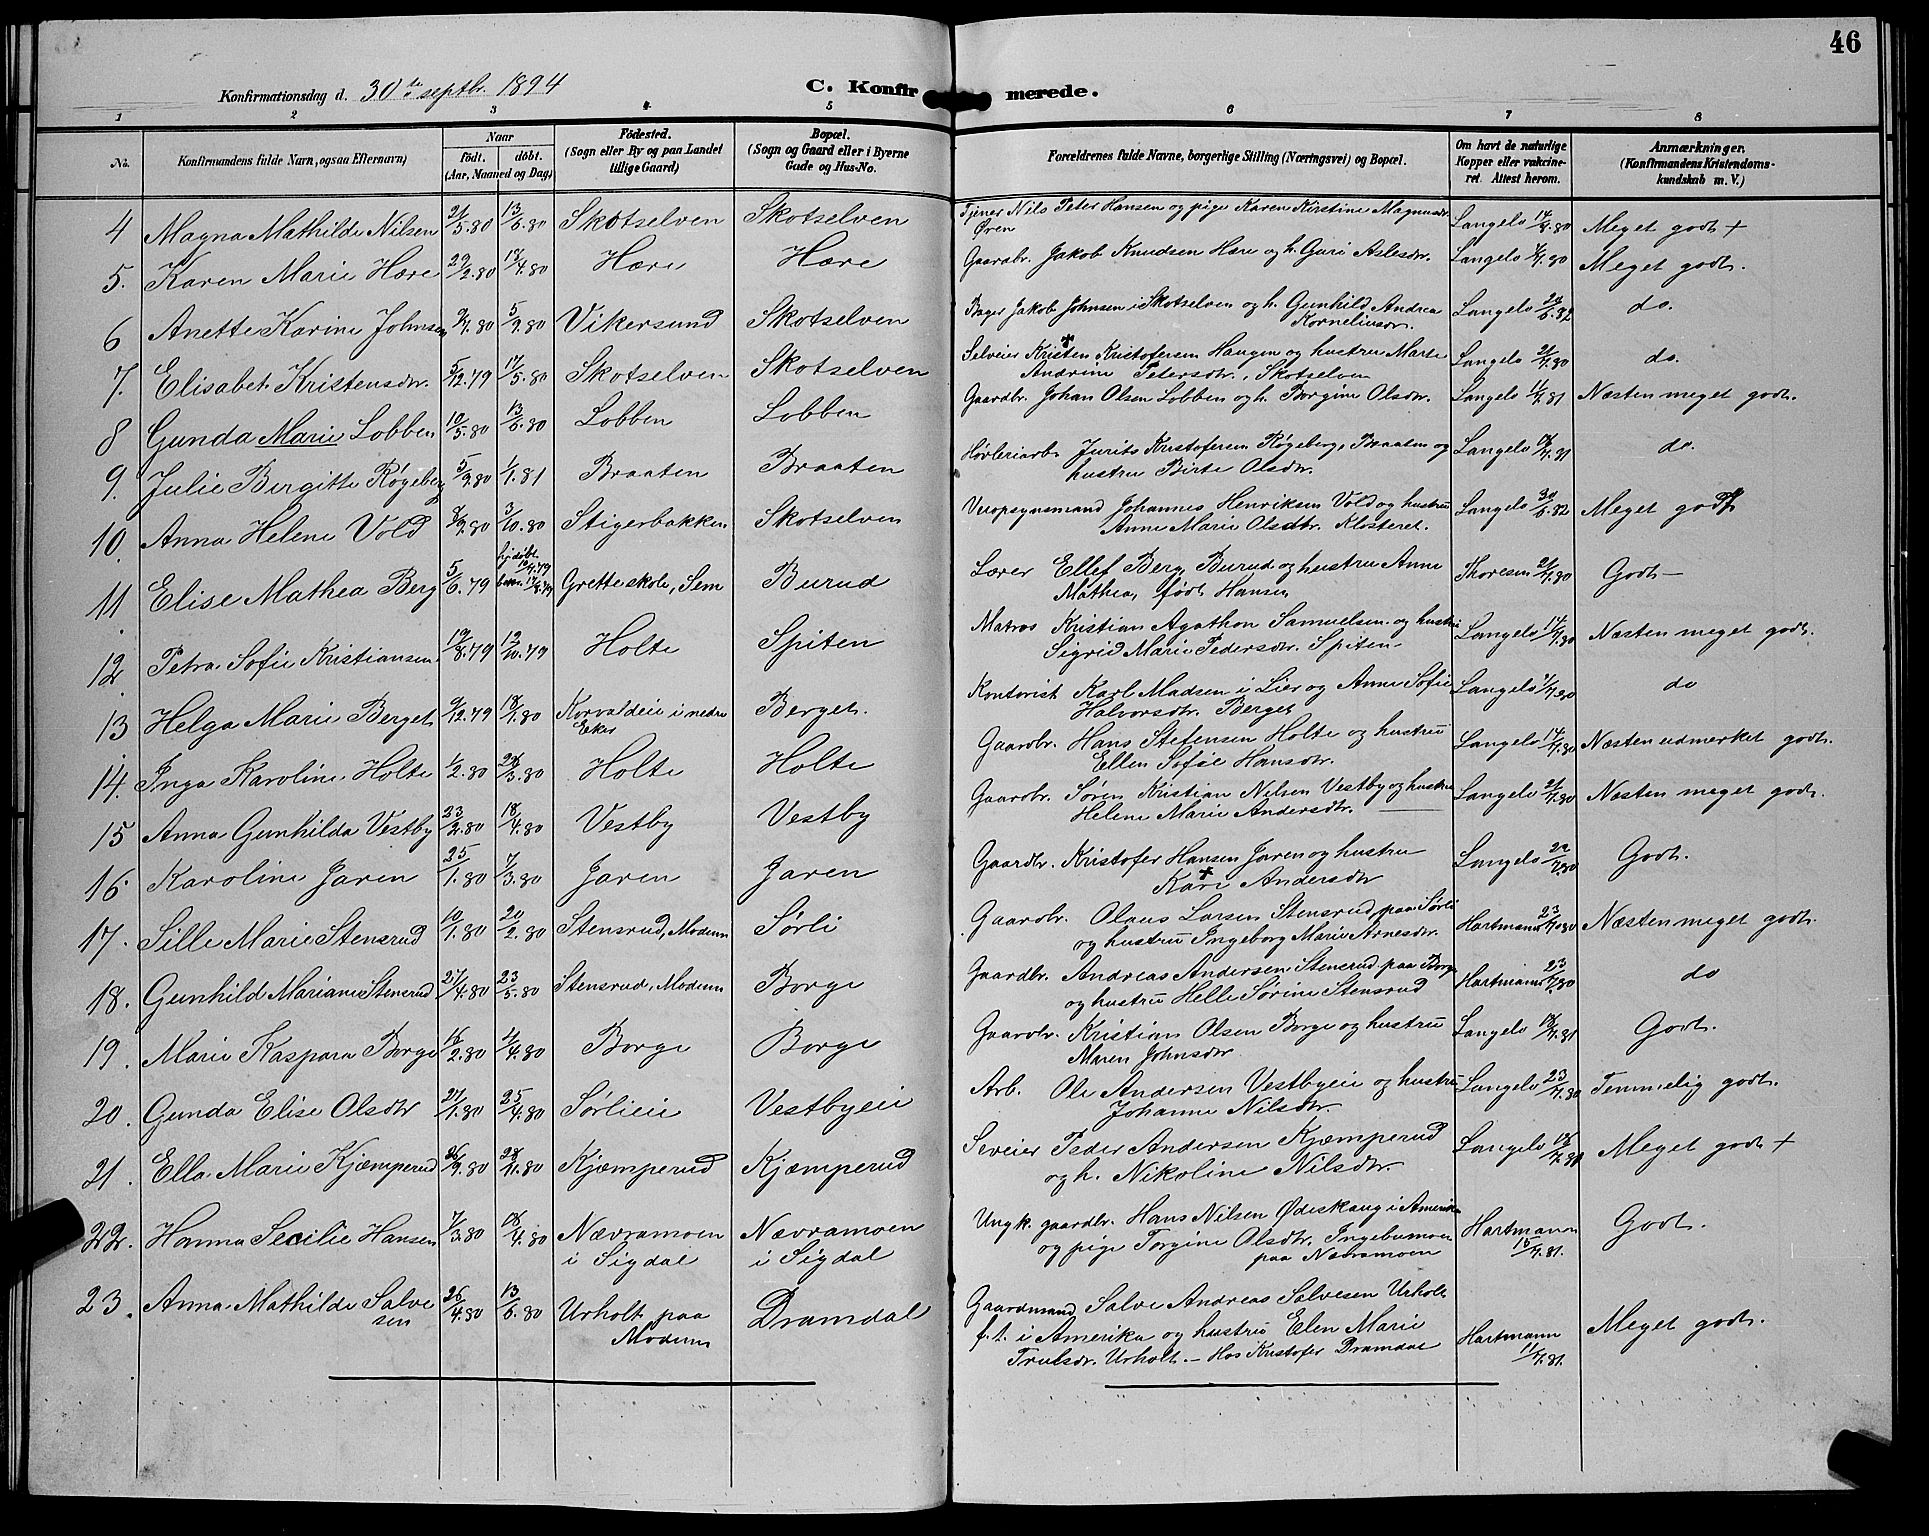 46
Konfirmationsdag d. 30te septbr. 1894
C. Konfirmerede.
1 2 3 4 5 6 7 8
No. Konfirmandens fulde Navn, ogsaa Efternavn) Naar födt. döbt. (Aar, Maaned og Dag) Födested. (Sogn eller By og paa Landet tillige Gaard) Bopæl. (Sogn og Gaard eller i Byerne Gade og Hus-No. Forældrenes fulde Navne, borgerlige Stilling (Næringsvei) og Bopæl. Om havt de naturlige Kopper eller vakcineret. Attest herom. Anmærkninger. (Konfirmandens Kristendomskundskab m. V.)
4 Magna Mathilde Nilsen 21/5.80 13/6.80 Skotselven Skotselven Tjener Nils Peter Hansen og pige Karen Kirstine Magnusdr. Langelo 14/8.80 Meget godt +
Øren
5. Karen Marie Hære 29/2.80 18/4.80 Hære Hære Gaardbr. Jakob Knudsen Hære og h. Guri Aslesdr. Langelo Meget godt.
6 Anette Karine Johnsen 5/9.80 Vikersund Skotselven Bager Jakob Johnsen i Skotselven og h. Gunhild Andrea Langelo 24/6.82 do.
Korneliusdr.
7. Elisabet Kristensdr. 5/12.79 17/5.80 Skotselven Skotselven Selveier Kristen + Kristofersen Haugen og hustru Marte Langelo 21/7.80 do.
Andrine Petersdtr., Skotselven
8 Gunda Marie Lobben 10/5.80 13/6.80 Lobben Lobben Gaardbr. Johan Olsen Lobben og h. Borgine Olsdr. Langelo 11/7.81 Næsten meget godt.
9. Julie Birgitte Røgeberg 5/9.80 1/1.81 Braaten Braaten Høvleriarb. Jurits Kristofersen Røgeberg, Braaten og Langelo do.
hustru Birte Olsdr.
10. Anna Helene Vold 8/9.80 3/10.80 Stigerbakken Skotselven Veiopsynsmand Johannes Henriksen Vold og hustru Langelo 30/6.82 Meget godt
Anne Marie Olsdtr. Klosteret.
11 Elise Mathea Berg 5/6.79 hjdøbt Gretteskole, Sem Burud Lærer Ellef Berg Burud og hustru Anne Thoresen 21/7.80 Godt —
Mathea, født Hansen
12 Petra Sofie Kristiansen 19/8.79 12/10.79 Holte Spiten Matros Kristian Agathon Samuelsen og hustru Langelo 14/7.80 Næsten meget godt.
Sigrid Marie Pedersdr. Spiten
13 Helga Marie Berget 9/12.79 18/1.80 Korvaldeie i nedre Berget. Kontorist Karl Madsen i Lier og Anne Sofie Langelo do
Eker Halvorsdtr. Berget
14. Inga Karoline Holte 1/2.80 28/3.80 Holte Holte Gaardbr. Hans Stefensen Holte og hustru Langelo 14/7.80 Næsten udmerket godt.
Ellen Sofie Hansdtr.
15 Anna Gunhilda Vestby 23/2.80 18/4.80 Vestby Vestby Gaardbr. Søren Kristian Nilsen Vestby og hustru Langelo 21/7.80 Næsten meget godt.
Helene Marie Andersdtr.
16. Karoline Jaren 25/1.80 7/3.80 Jaren Jaren Gaardbr. Kristofer Hansen Jaren og hustru Langelo 22/7.80 Godt.
Kari + Andersdtr
17. Sille Marie Stensrud 10/1.80 20/2.80 Stensrud, Modum Sørli Gaardbr. Olaus Larsen Stensrud paa Sørli Hartmann Næsten meget godt.
og hustru Ingeborg Marie Arnesdtr.
18. Gunhild Mariane Stensrud 27/4.80 23/5.80 Stensrud, Modum Borge Gaardbr. Andreas Andersen Stensrud paa Borge Hartmann 23/7.80 do
og hustru Helle Sørine Stensrud
19. Marie Kaspara Borge 16/2.80 4/4.80 Borge Borge Gaardbr. Kristian Olsen Borge og hustru Langelo 18/7.81 Godt.
Maren Johnsdtr.
20. Gunda Elise Olsdtr 27/1.80 25/4.80 Sørlieie Vestbyeie Arb. Ole Andersen Vestbyeie og hustru Langelo 23/7.80 Temmelig godt.
Johanne Nilsdtr.
21. Ella Marie Kjæmperud 26/9.80 28/11.80 Kjæmperud Kjæmperud Seveier Peder Andersen Kjæmperud Langelo Meget godt +
og h. Nikoline Nilsdtr.
22. Hanna Secilie Hansen 7/3.80 18/4.80 Nævramoen Nævramoen Ungk. gaardbr. Hans Nilsen Ødeskaug i Amerika Hartmann Godt.
i Sigdal i Sigdal og pige Torgine Olsdtr. Ingebumoen 15/7.81.
paa Nævramoen
23. Anna Mathilde Salvesen 26/4.80 13/6.80 Urholt paa Dramdal Gaardmand Salve Andreas Salvesen Urholt Meget godt.
Modum f. t. i Amerika og hustru Elen Marie Hartmann
Trulsdr. Urholt. – Hos Kristofer Dramdal 11/7.81.